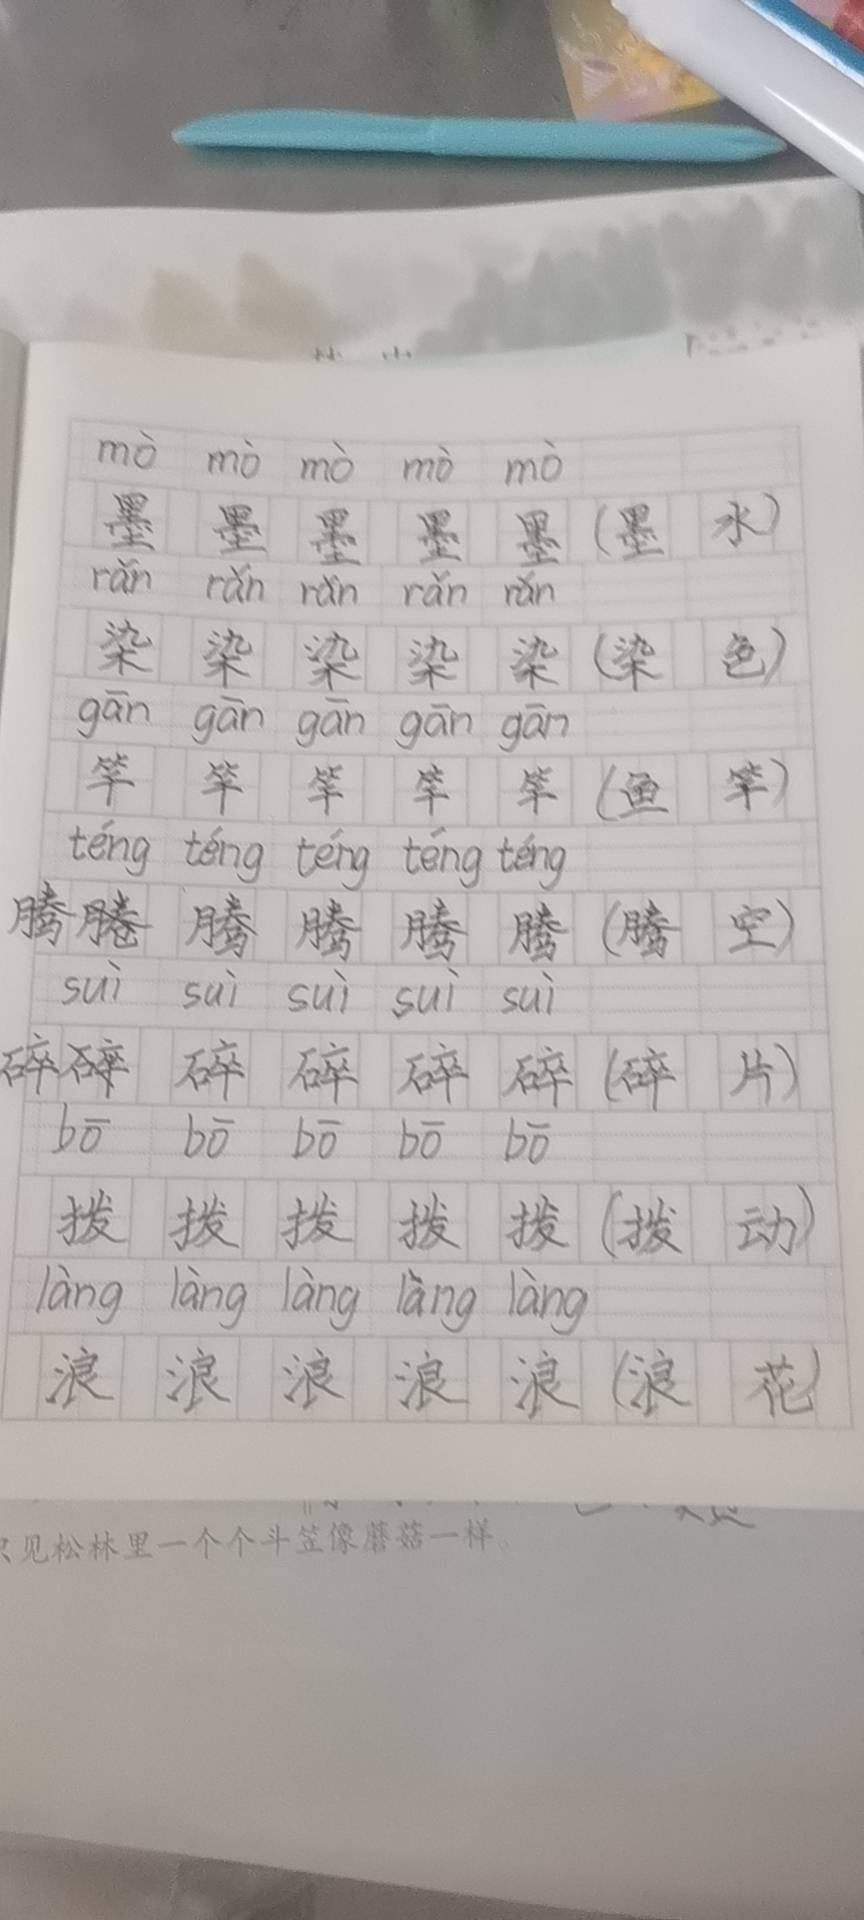 mò mò mò mò mò
墨 墨 墨 墨 墨 (墨 水)
rǎn rǎn rǎn rǎn rǎn
染 染 染 染 染 (染 色)
gān gān gān gān gān
竿 竿 竿 竿 竿 (鱼 竿)
téng téng téng téng téng
腾 腾 腾 腾 腾 (腾 空)
suì suì suì suì suì
碎 碎 碎 碎 碎 (碎 片)
bō bō bō bō bō
拨 拨 拨 拨 拨 (拨 动)
làng làng làng làng làng
浪 浪 浪 浪 浪 (浪 花)
见松林里一个个斗笠像蘑菇一样。